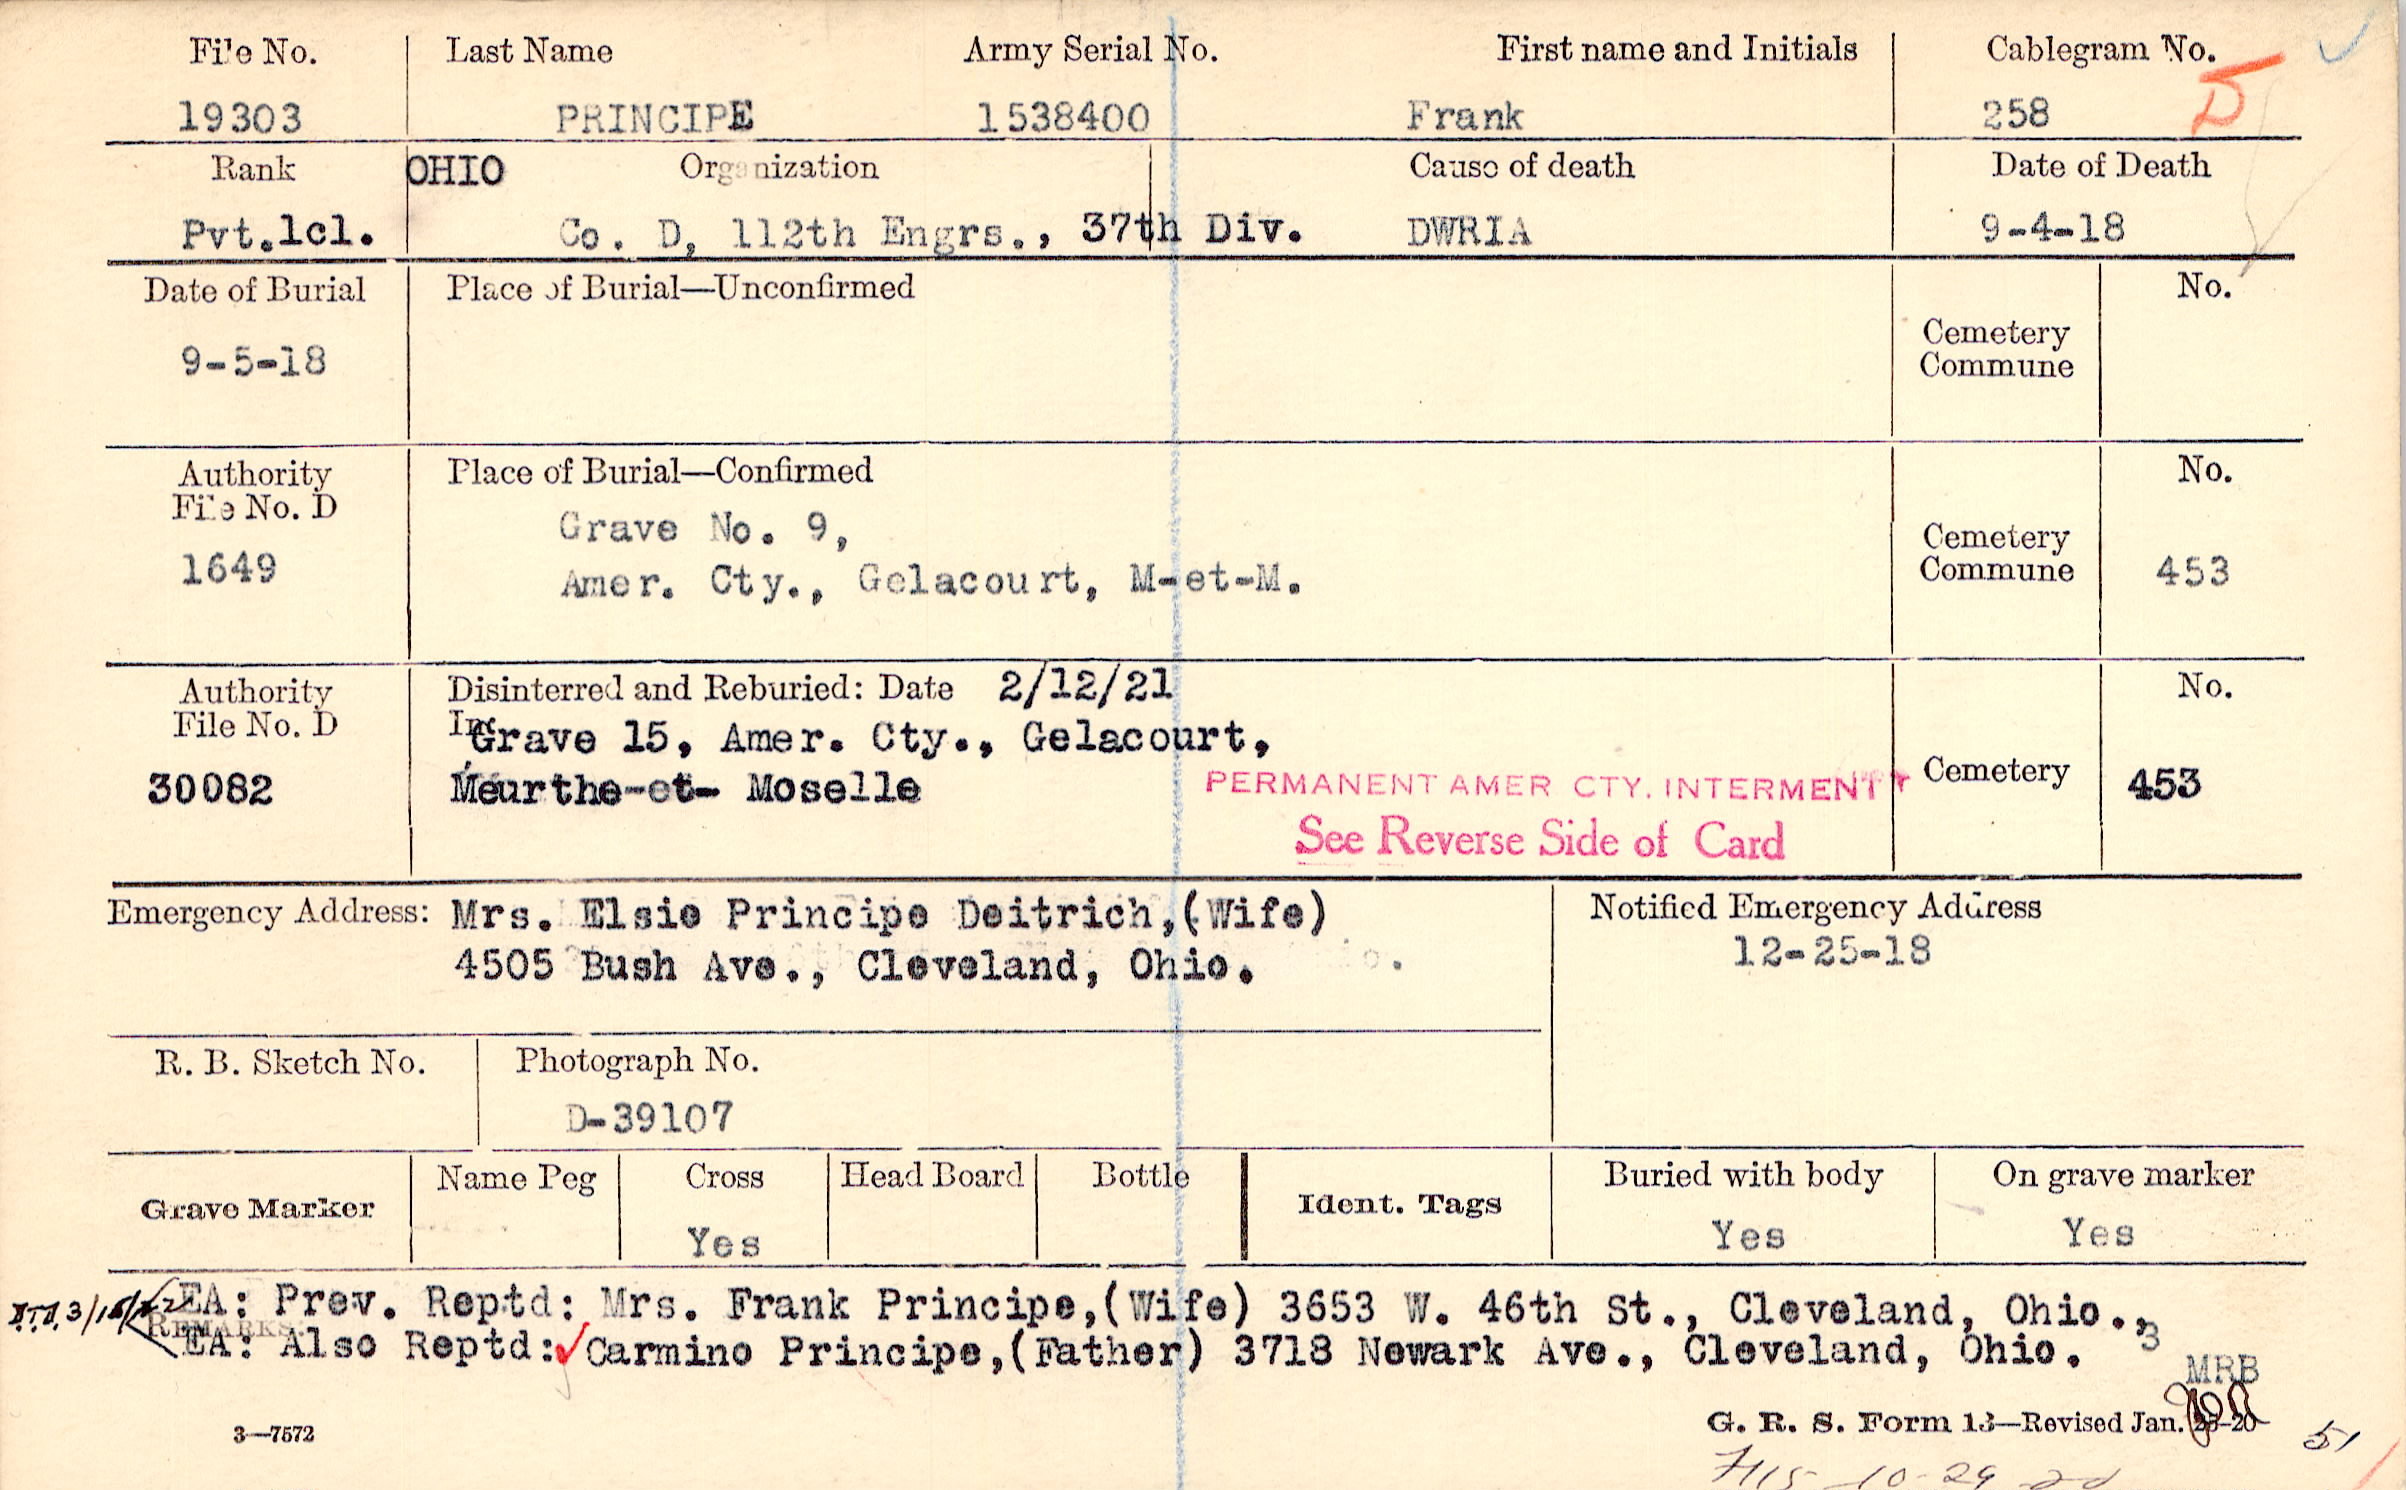 File No. Last Name Army Serial No. First name and Initials Cablegram No.
19303 PRINCIPE 1538400 Frank 258 D
Rank OHIO Organization Cause of death Date of Death
Pvt.1cl. Co. D, 112th Engrs., 37th Div. DWRIA 9-4-18
Date of Burial Place of Burial—Unconfirmed No.
9-5-18
Cemetery
Commune
Authority Place of Burial—Confirmed No.
File No. D
1649
Grave No. 9,
Amer. Cty., Gelacourt, M-et-M.
Cemetery
Commune 453
Authority Disinterred and Reburied: Date 2/12/21 No.
File No. D In
30082
Grave 15, Amer. Cty., Gelacourt,
Meurthe-et- Moselle
PERMANENT AMER CTY. INTERMENT
See Reverse Side of Card
Cemetery 453
Emergency Address: Mrs. Elsie Principe Deitrich,(Wife)
4505 Bush Ave., Cleveland, Ohio.
Notified Emergency Address
12-25-18
R. B. Sketch No. Photograph No.
D-39107
Grave Marker Name Peg Cross Head Board Bottle Ident. Tags Buried with body On grave marker
Yes Yes Yes
EA: Prev. Reptd: Mrs. Frank Principe,(Wife) 3653 W. 46th St., Cleveland, Ohio.,
REMARKS:
EA: Also Reptd: Carmino Principe,(Father) 3718 Newark Ave., Cleveland, Ohio. 3
MRB
3—7572 G. R. S. Form 13—Revised Jan. 23-20 51